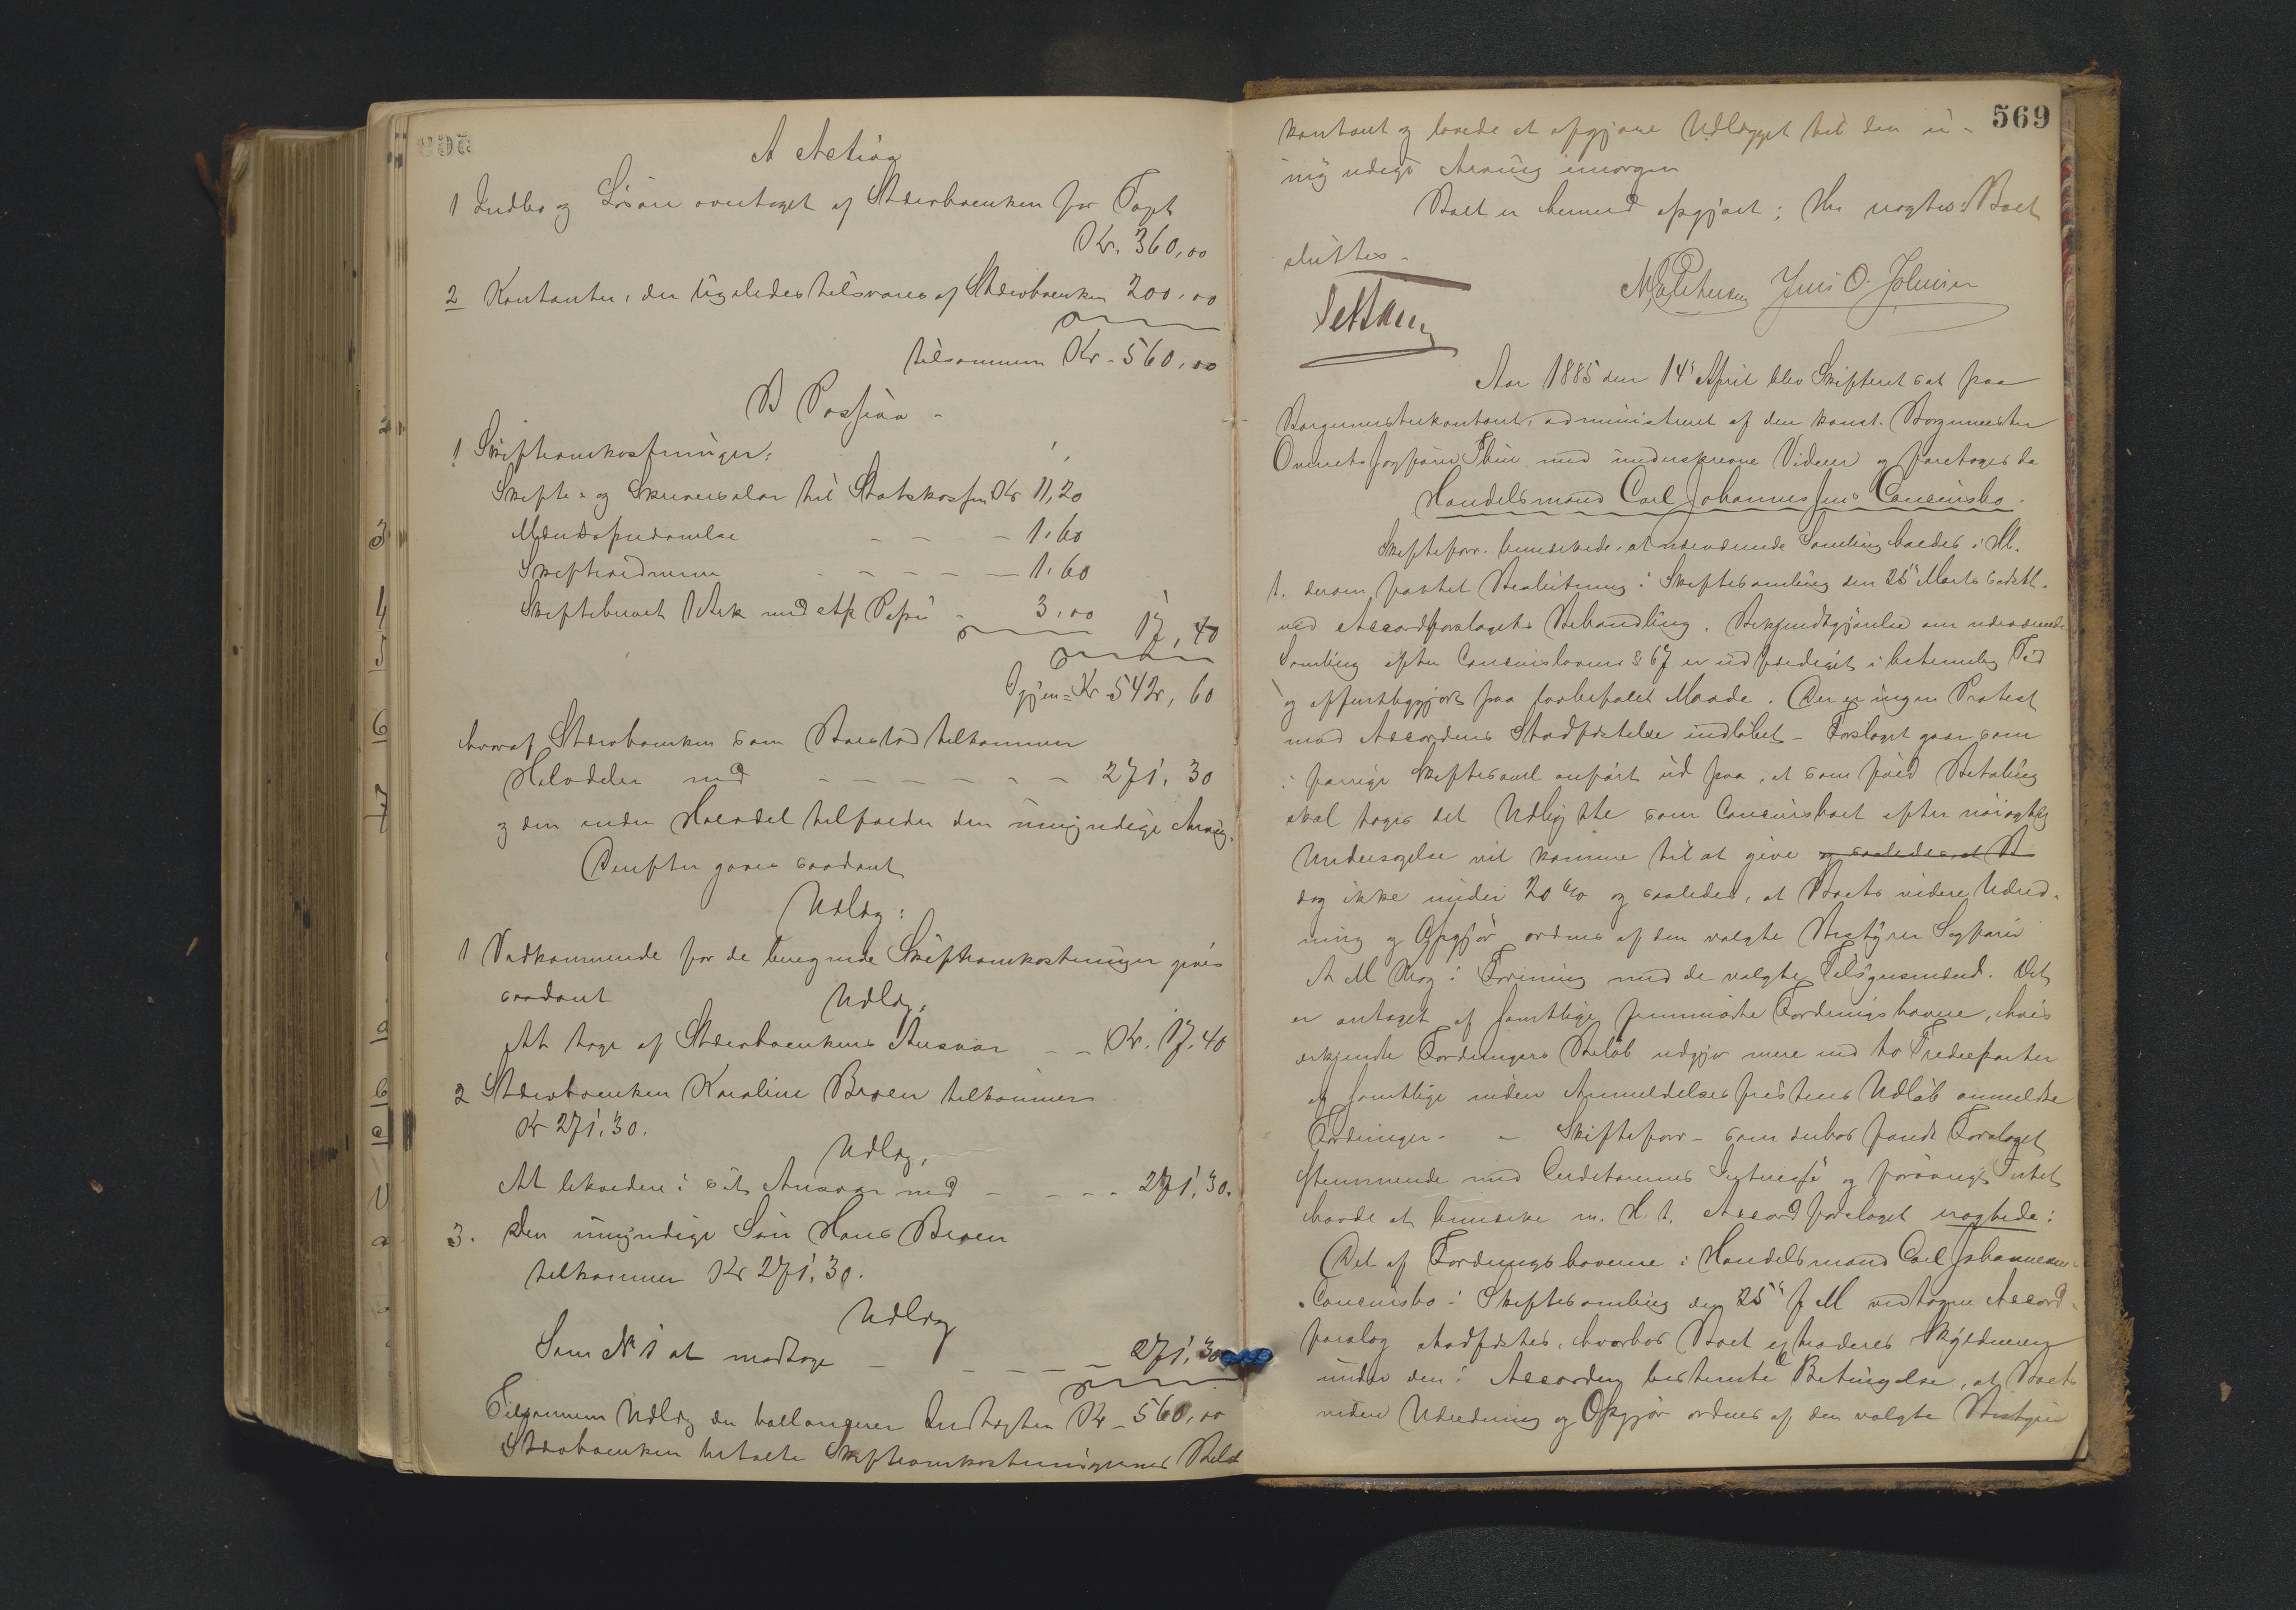 A Activa
1 Indbo og Løsøre overtaget af Stervboenken for Taxt
Kr. 360,00
2 Kontanter, der ligeledes tilsvares af Stervboenken 200,00
tilsammen Kr. 560,00
B Passiva
1 Skifteomkostninger:
Skifte- og Skriversalær til Statskassen Kr 11,20
Mændsfredømelse - - - - 1.60
Skiftevidnerne - - - - - 1.60
Skiftebrevet 1 Ark med stp Papir - 3,00 17,40
Igjen = Kr 542, 60
hvoraf Stervboenken som Boeslod tilkommer
Halvdelen med - - - - - - - 271, 30
og den anden Halvdel tilfalder den umyndige Arving.
Derefter gøres saadant
Udlæg:
1 Vedkommende for de beregnede Skifteomkostninger gives
saadant Udlæg,
At tage af Stervboenkens Ansvar - - Kr. 17.40
2 Stervboenken Karoline Broen tilkommer
Kr 271,30.
Udlæg,
At likvidere i sit Ansvar med - - - - 271,30.
3. Den umyndige Søn Hans Broen
tilkommer Kr 271,30.
Udlæg
Som No 1 at modtage - - - - - 271,30
Tilsammen Udlæg der ballancerer Indtægten Kr - 560,00
Stervboenken betalte Skifteomkostningernes Beløb
569
kontant og lovede at opgjøre Udlægget til den u-
myndige Arving imorgen
Boet er hermed opgjort; thi eragtes: Boet
sluttes.
Jens O. Johnsen
Aar 1885 den 14 April blev Skifteret sat paa
Borgermesterkontoret, administreret af den konst. Borgermester
Overretssagfører med underskrevne Vidner og foretoges da
Handelsmand Carl Johannesens Concursbo.
Skifteforv. bemærkede, at nærværende Samling holdes i H.
t. derom fattet Beslutning i Skiftesamling den 25 Marts sidstl.
ved Accordforslagets Behandling. Bekjendtgjørelse om nærværende
Samling efter Concurslovens § 67 er udfærdiget i betimelig Tid
og offentliggjort paa forbefalet Maade. Der er ingen Protest
mod Accordens Stadfæstelse indløbet - Forslaget gaar som
i forrige Skiftesaml anført ud paa, at som fuld Betaling
skal tages det Udbytte som Concursboet efter nøiagtig
Undersøgelse vil komme til at give og saaledes at B
dog ikke under 20 % og saaledes, at Boets videre Udred-
ning og Opgjør ordnes af den valgte Bestyrer Sagfører
A M i Forening med de valgte Tilsynsmænd. Det
er antaget af samtlige fremmødte Fordringshavere, hvis
erkjendte Fordringers Beløb udgjør mere end to Trediepårter
af samtlige inden Anmeldelsesfristens Udløb anmeldte
Fordringer. - Skifteforv - som derhos fandt Forslaget
stemmende med Creditorernes Interesse og forøvrigt Intet
havde at bemærke m. H. t. Accordforslaget eragtede:
Det af Fordringshaverne i Handelsmand Carl Johannesens
Concursbo i Skiftesamling den 25 f M vedtagne Accord-
forslag stadfæstes, hvorhos Boet extraderes Skyldneren
under den i Accorden bestemte Betingelse, at Boets
videre Udredning og Opgjør ordnes af den valgte Bestyrer